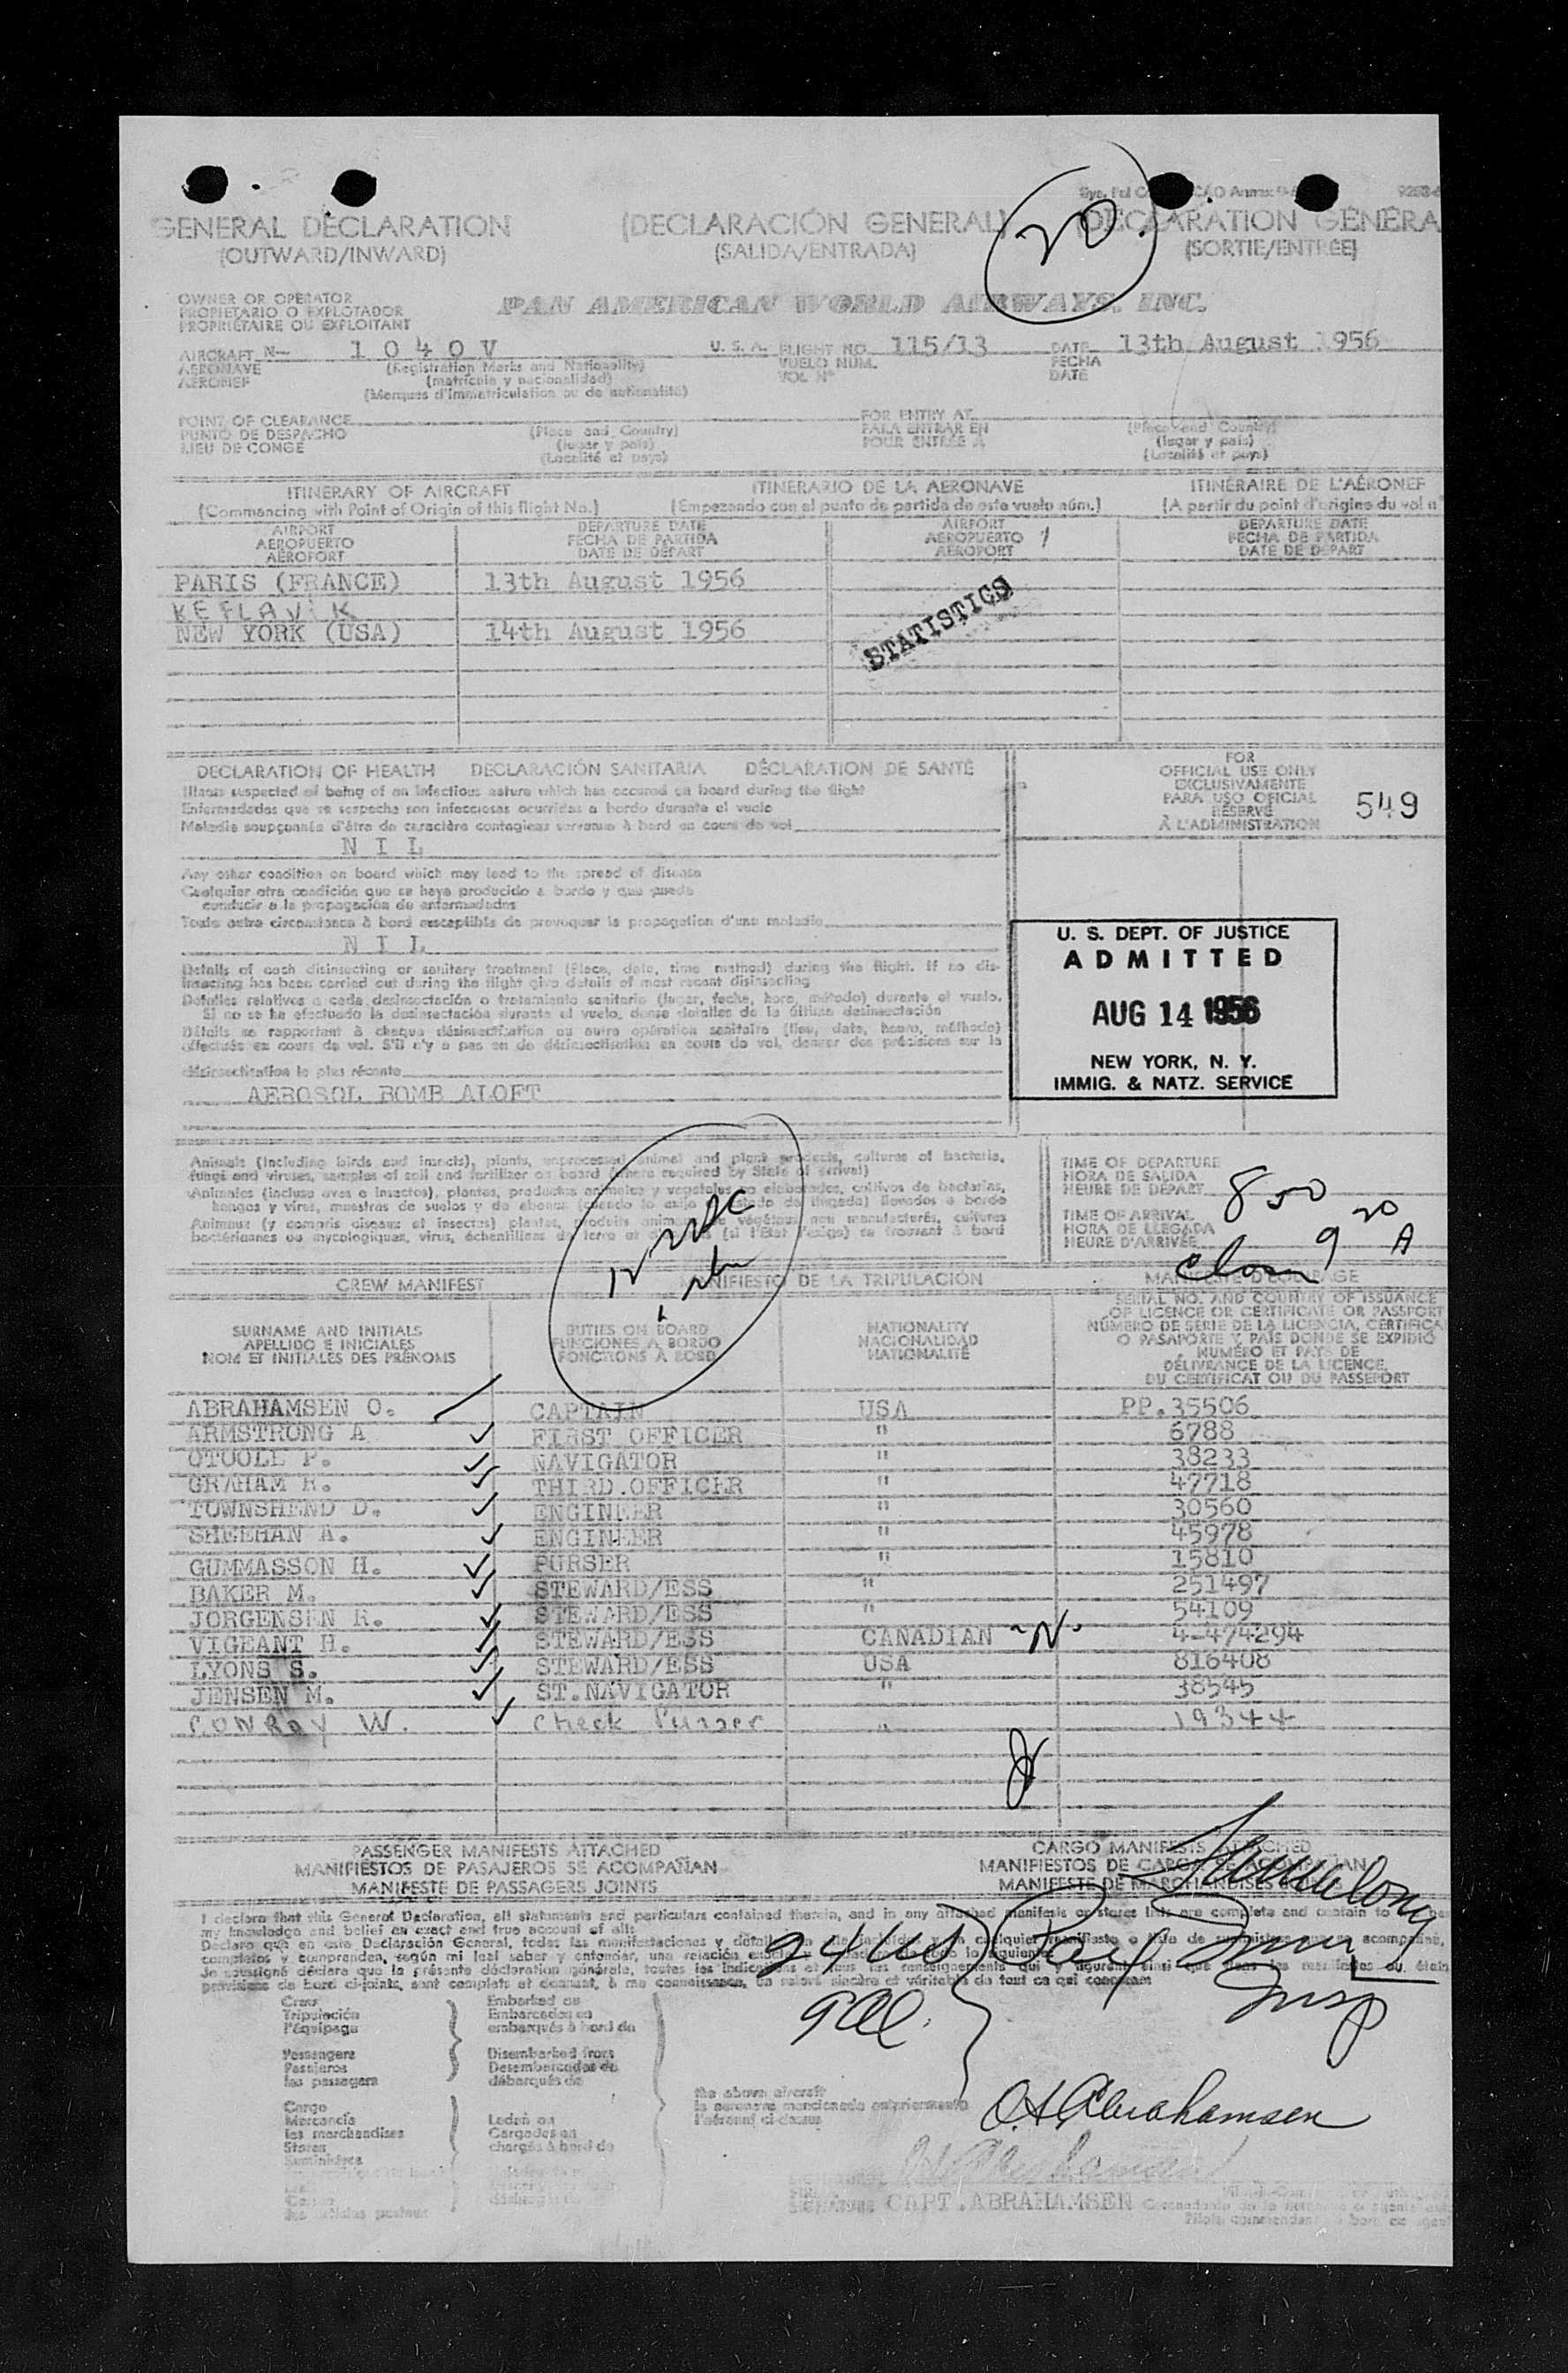 GENERAL DECLARATION (DECLARACIÓN GENERAL) (DÉCLARATION GÉNÉRA
(OUTWARD/INWARD) (SALIDA/ENTRADA) (SORTIE/ENTRÉE)
20.
OWNER OR OPERATOR
PROPIETARIO O EXPLOTADOR
PROPRIÉTAIRE OU EXPLOITANT
PAN AMERICAN WORLD AIRWAYS, INC.
AIRCRAFT N- 1 0 4 0 V U. S. A. FLIGHT NO. 115/13 DATE 13th August 1956
AERONAVE (Registration Marks and Nationality) VUELO NÚM. FECHA
AÉRONEF (matrícula y nacionalidad) VOL Nº DATE
(Marques d'immatriculation ou de nationalité)
POINT OF CLEARANCE FOR ENTRY AT
PUNTO DE DESPACHO (Place and Country) PARA ENTRAR EN (Place and Country)
LIEU DE CONGÉ (lugar y país) POUR ENTRÉE À (lugar y país)
(Localité et pays) (Localité et pays)
ITINERARY OF AIRCRAFT ITINERARIO DE LA AERONAVE ITINÉRAIRE DE L'AÉRONEF
(Commencing with Point of Origin of this flight No.) (Empezando con el punto de partida de este vuelo núm.) (A partir du point d'origine du vol n°
AIRPORT DEPARTURE DATE AIRPORT DEPARTURE DATE
AEROPUERTO FECHA DE PARTIDA AEROPUERTO FECHA DE PARTIDA
AÉROPORT DATE DE DÉPART AÉROPORT DATE DE DÉPART
PARIS (FRANCE) 13th August 1956
KEFLAVIK
NEW YORK (USA) 14th August 1956
STATISTICS
DECLARATION OF HEALTH DECLARACIÓN SANITARIA DÉCLARATION DE SANTÉ
Illness suspected of being of an infectious nature which has occured on board during the flight
Enfermedades que se sospecha son infecciosas ocurridas a bordo durante el vuelo
Maladie soupçonnée d'être de caractère contagieux survenue à bord en cours de vol
N I L
FOR
OFFICIAL USE ONLY
EXCLUSIVAMENTE
PARA USO OFICIAL
RÉSERVÉ
À L'ADMINISTRATION
549
Any other condition on board which may lead to the spread of disease
Cualquier otra condición que se haya producido a bordo y que pueda
conducir a la propagación de enfermedades
Toute autre circonstance à bord susceptible de provoquer la propagation d'une maladie
N I L
U. S. DEPT. OF JUSTICE
ADMITTED
AUG 14 1956
NEW YORK, N. Y.
IMMIG. & NATZ. SERVICE
Details of each disinsecting or sanitary treatment (Place, date, time method) during the flight. If no dis-
insecting has been carried out during the flight give details of most recent disinsecting
Detalles relativos a cada desinsectación o tratamiento sanitario (lugar, fecha, hora, método) durante el vuelo.
Si no se ha efectuado la desinsectación durante el vuelo, dense detalles de la última desinsectación
Détails se rapportant à chaque désinsectisation ou autre opération sanitaire (lieu, date, heure, méthode)
effectués en cours de vol. S'il n'y a pas eu de désinsectisation en cours de vol, donner des précisions sur la
désinsectisation la plus récente
AEROSOL BOMB ALOFT
Animals (including birds and insects), plants, unprocessed animal and plant products, cultures of bacteria,
fungi and viruses, samples of soil and fertilizer on board (where required by State of arrival)
Animales (incluso aves e insectos), plantas, productos animales y vegetales no elaborados, cultivos de bacterias,
hongos y virus, muestras de suelos y de abonos (cuando lo exija el Estado de llegada) llevados a bordo
Animaux (y compris oiseaux et insectes) plantes, produits animaux et végétaux non manufacturés, cultures
bactériennes ou mycologiques, virus, échantillons de terre et (si l'Etat l'exige) se trouvant à bord
TIME OF DEPARTURE
HORA DE SALIDA
HEURE DE DÉPART 850
TIME OF ARRIVAL
HORA DE LLEGADA
HEURE D'ARRIVÉE 9 20 A
CREW MANIFEST MANIFIESTO DE LA TRIPULACIÓN MANIFESTE D'ÉQUIPAGE
SURNAME AND INITIALS
APELLIDO E INICIALES
NOM ET INITIALES DES PRÉNOMS
DUTIES ON BOARD
FUNCIONES A BORDO
FONCTIONS À BORD
NATIONALITY
NACIONALIDAD
NATIONALITÉ
SERIAL NO. AND COUNTRY OF ISSUANCE
OF LICENCE OR CERTIFICATE OR PASSPORT
NÚMERO DE SERIE DE LA LICENCIA, CERTIFICA
O PASAPORTE Y PAÍS DONDE SE EXPIDIÓ
NUMÉRO ET PAYS DE
DÉLIVRANCE DE LA LICENCE,
DU CERTIFICAT OU DU PASSEPORT
ABRAHAMSEN O. CAPTAIN USA PP.35506
ARMSTRONG A FIRST OFFICER " 6788
OTOOLE P. NAVIGATOR " 38233
GRAHAM R. THIRD.OFFICER " 47718
TOWNSHEND D. ENGINEER " 30560
SHEEHAN A. ENGINEER " 45978
GUMMASSON H. PURSER " 15810
BAKER M. STEWARD/ESS " 251497
JORGENSEN R. STEWARD/ESS " 54109
VIGEANT H. STEWARD/ESS CANADIAN ~N. 4-474294
LYONS S. STEWARD/ESS USA 816408
JENSEN M. ST.NAVIGATOR " 38545
CONROY W. Check Purser " 19344
PASSENGER MANIFESTS ATTACHED CARGO MANIFESTS ATTACHED
MANIFIESTOS DE PASAJEROS SE ACOMPAÑAN MANIFIESTOS DE CARGA SE ACOMPAÑAN
MANIFESTE DE PASSAGERS JOINTS MANIFESTE DE MARCHANDISES
I declare that this General Declaration, all statements and particulars contained therein, and in any attached manifests or stores lists are complete and contain to
my knowledge and belief an exact and true account of all:
Declaro que en esta Declaración General, todas las manifestaciones y
completos y comprenden, según mi leal saber y entender, una relación
Je soussigné déclare que la présente déclaration générale, toutes les
Insp
Crew
Tripulación
l'équipage
Embarked on
Embarcados en
embarqués à bord de
Passengers
Pasajeros
les passagers
Disembarked from
Desembarcados de
débarqués de
Cargo
Mercancía
les marchandises
Stores
Suministros
Laden on
Cargados en
chargés à bord de
the above aircraft
la aeronave mencionada anteriormente
l'aéronef ci-dessus
O.H. Abrahamsen
SIGNATURE CAPT. ABRAHAMSEN